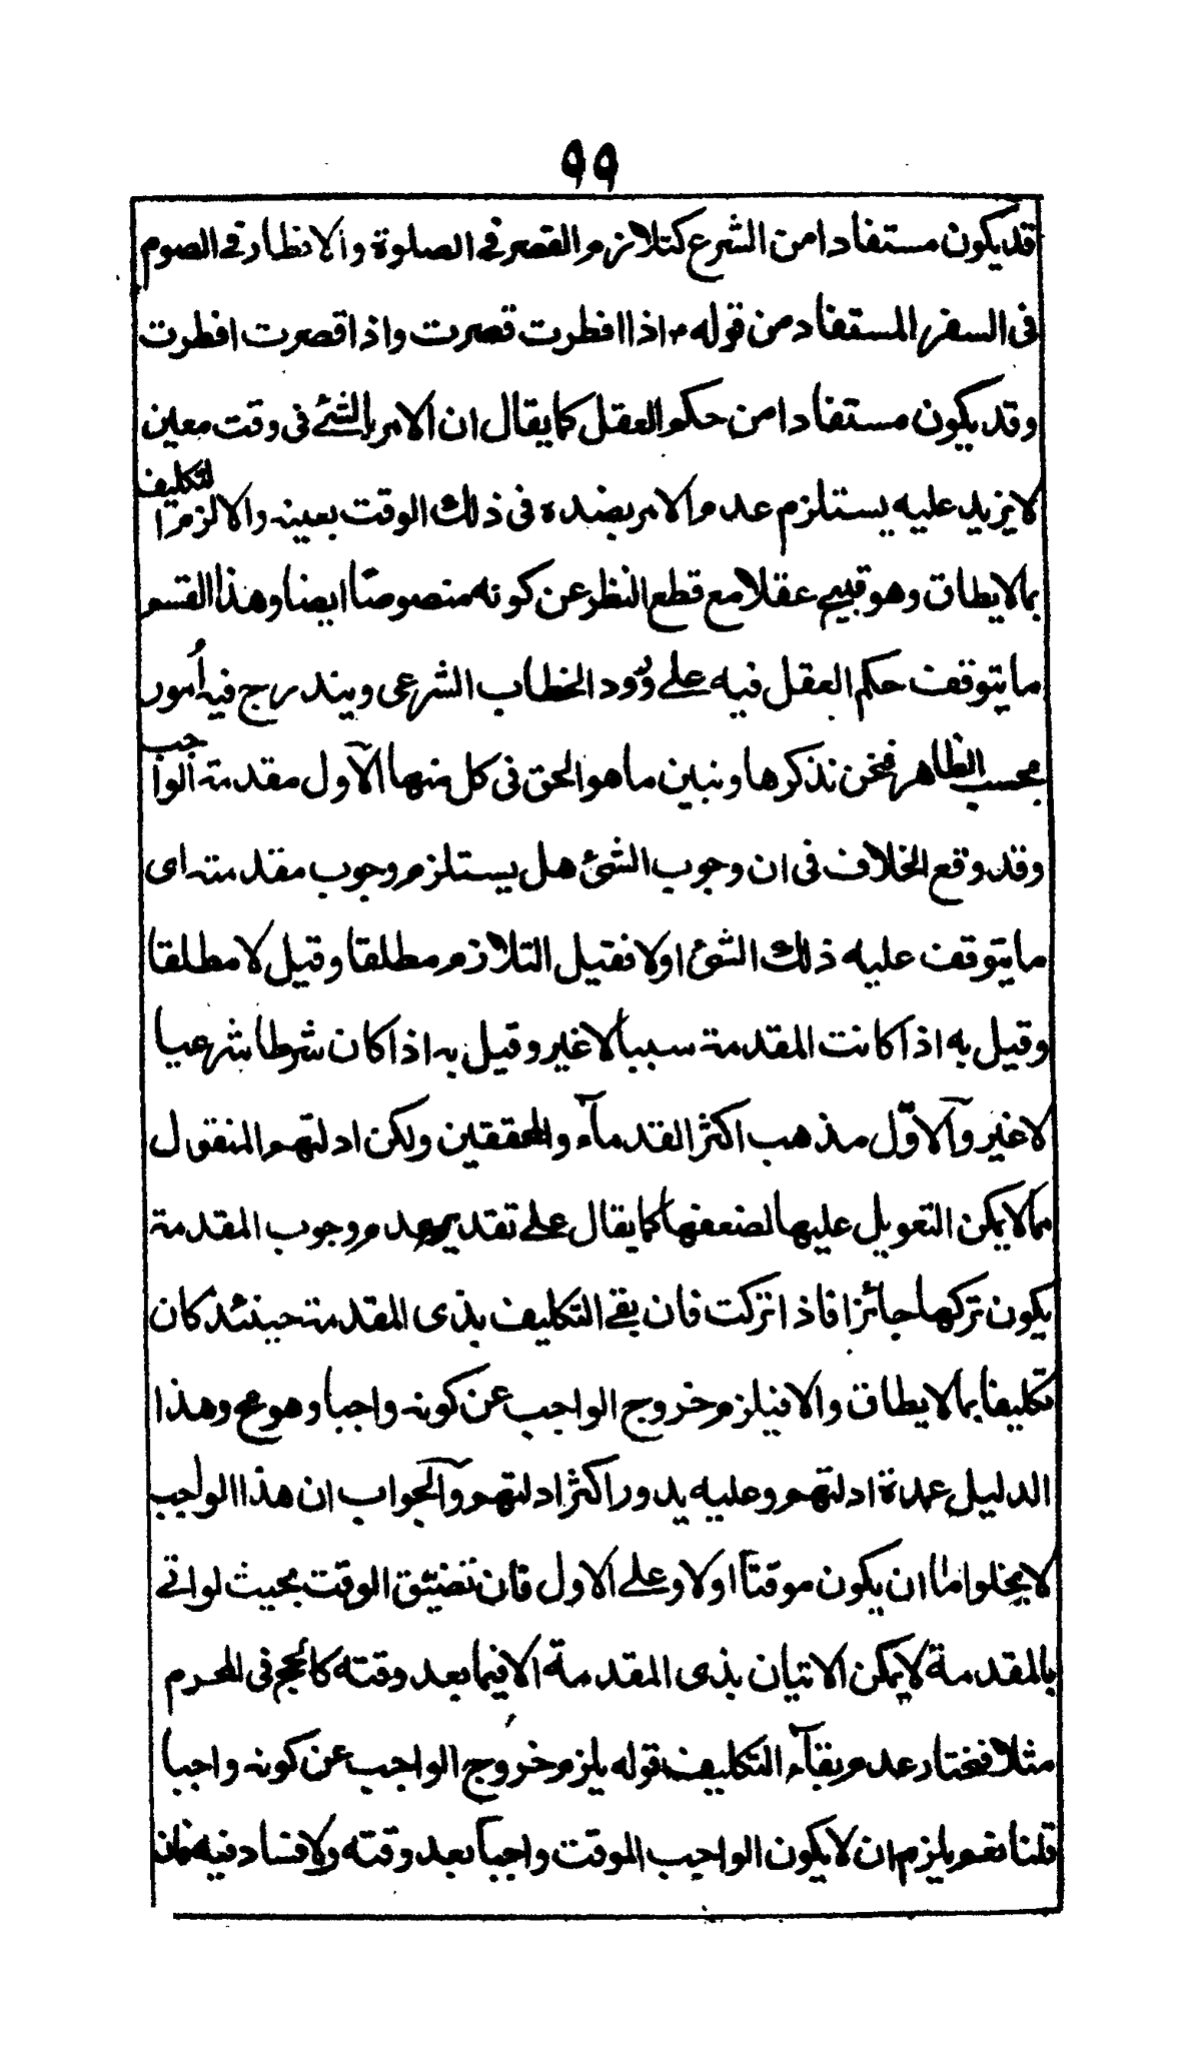 ٩٩
قد يكون مستفادا من الشرع كتلازم القصر فى الصلوة والافطار فى الصوم
فى السفر المستفاد من قوله م اذا افطرت قصرت واذا قصرت افطرت
وقد يكون مستفادا من حكم العقل كما يقال ان الامر بالشئ فى وقت معين
لا يزيد عليه يستلزم عدم الامر بضده فى ذلك الوقت بعينه والا لزم التكليف
بما لا يطاق وهو قبيح عقلا مع قطع النظر عن كونه منصوصا ايضا وهذا القسم
ما يتوقف حكم العقل فيه على ورود الخطاب الشرعى ويندرج فيه أمور
بحسب الظاهر فنحن نذكرها ونبين ما هو الحق فى كل منها الآول مقدمة الواجب
وقد وقع الخلاف فى ان وجوب الشئ هل يستلزم وجوب مقدمته اى
ما يتوقف عليه ذلك الشئ اولا فقيل التلازم مطلقا وقيل لا مطلقا
وقيل به اذا كانت المقدمة سببا لا غير وقيل به اذا كان شرطا شرعيا
لا غير وآلاوّل مذهب اكثر القدمآء والمحققين ولكن ادلتهم المنقول
مما لا يمكن التعويل عليها لضعفها كما يقال على تقدير عدم وجوب المقدمة
يكون تركها جائزا فاذا تركت فان بقى التكليف بذى المقدمة حينئذ كان
تكليفا بما لا يطاق والا فيلزم خروج الواجب عن كونه واجبا وهو مح وهذا
الدليل عمدة ادلتهم وعليه يدور اكثر ادلتهم وآلجواب ان هذا الواجب
لا يخلوا ما ان يكون موقتا اولا وعلى الاول فان تضيق الوقت بحيث لو اتى
بالمقدمة لا يمكن الاتيان بذى المقدمة الا فيما بعد وقته كالحج فى المحرم
مثلا فنختار عدم بقآء التكليف قوله يلزم خروج الواجب عن كونه واجبا
قلنا نعم يلزم ان لا يكون الواجب الموقت واجبا بعد وقته ولا فساد فيه فان